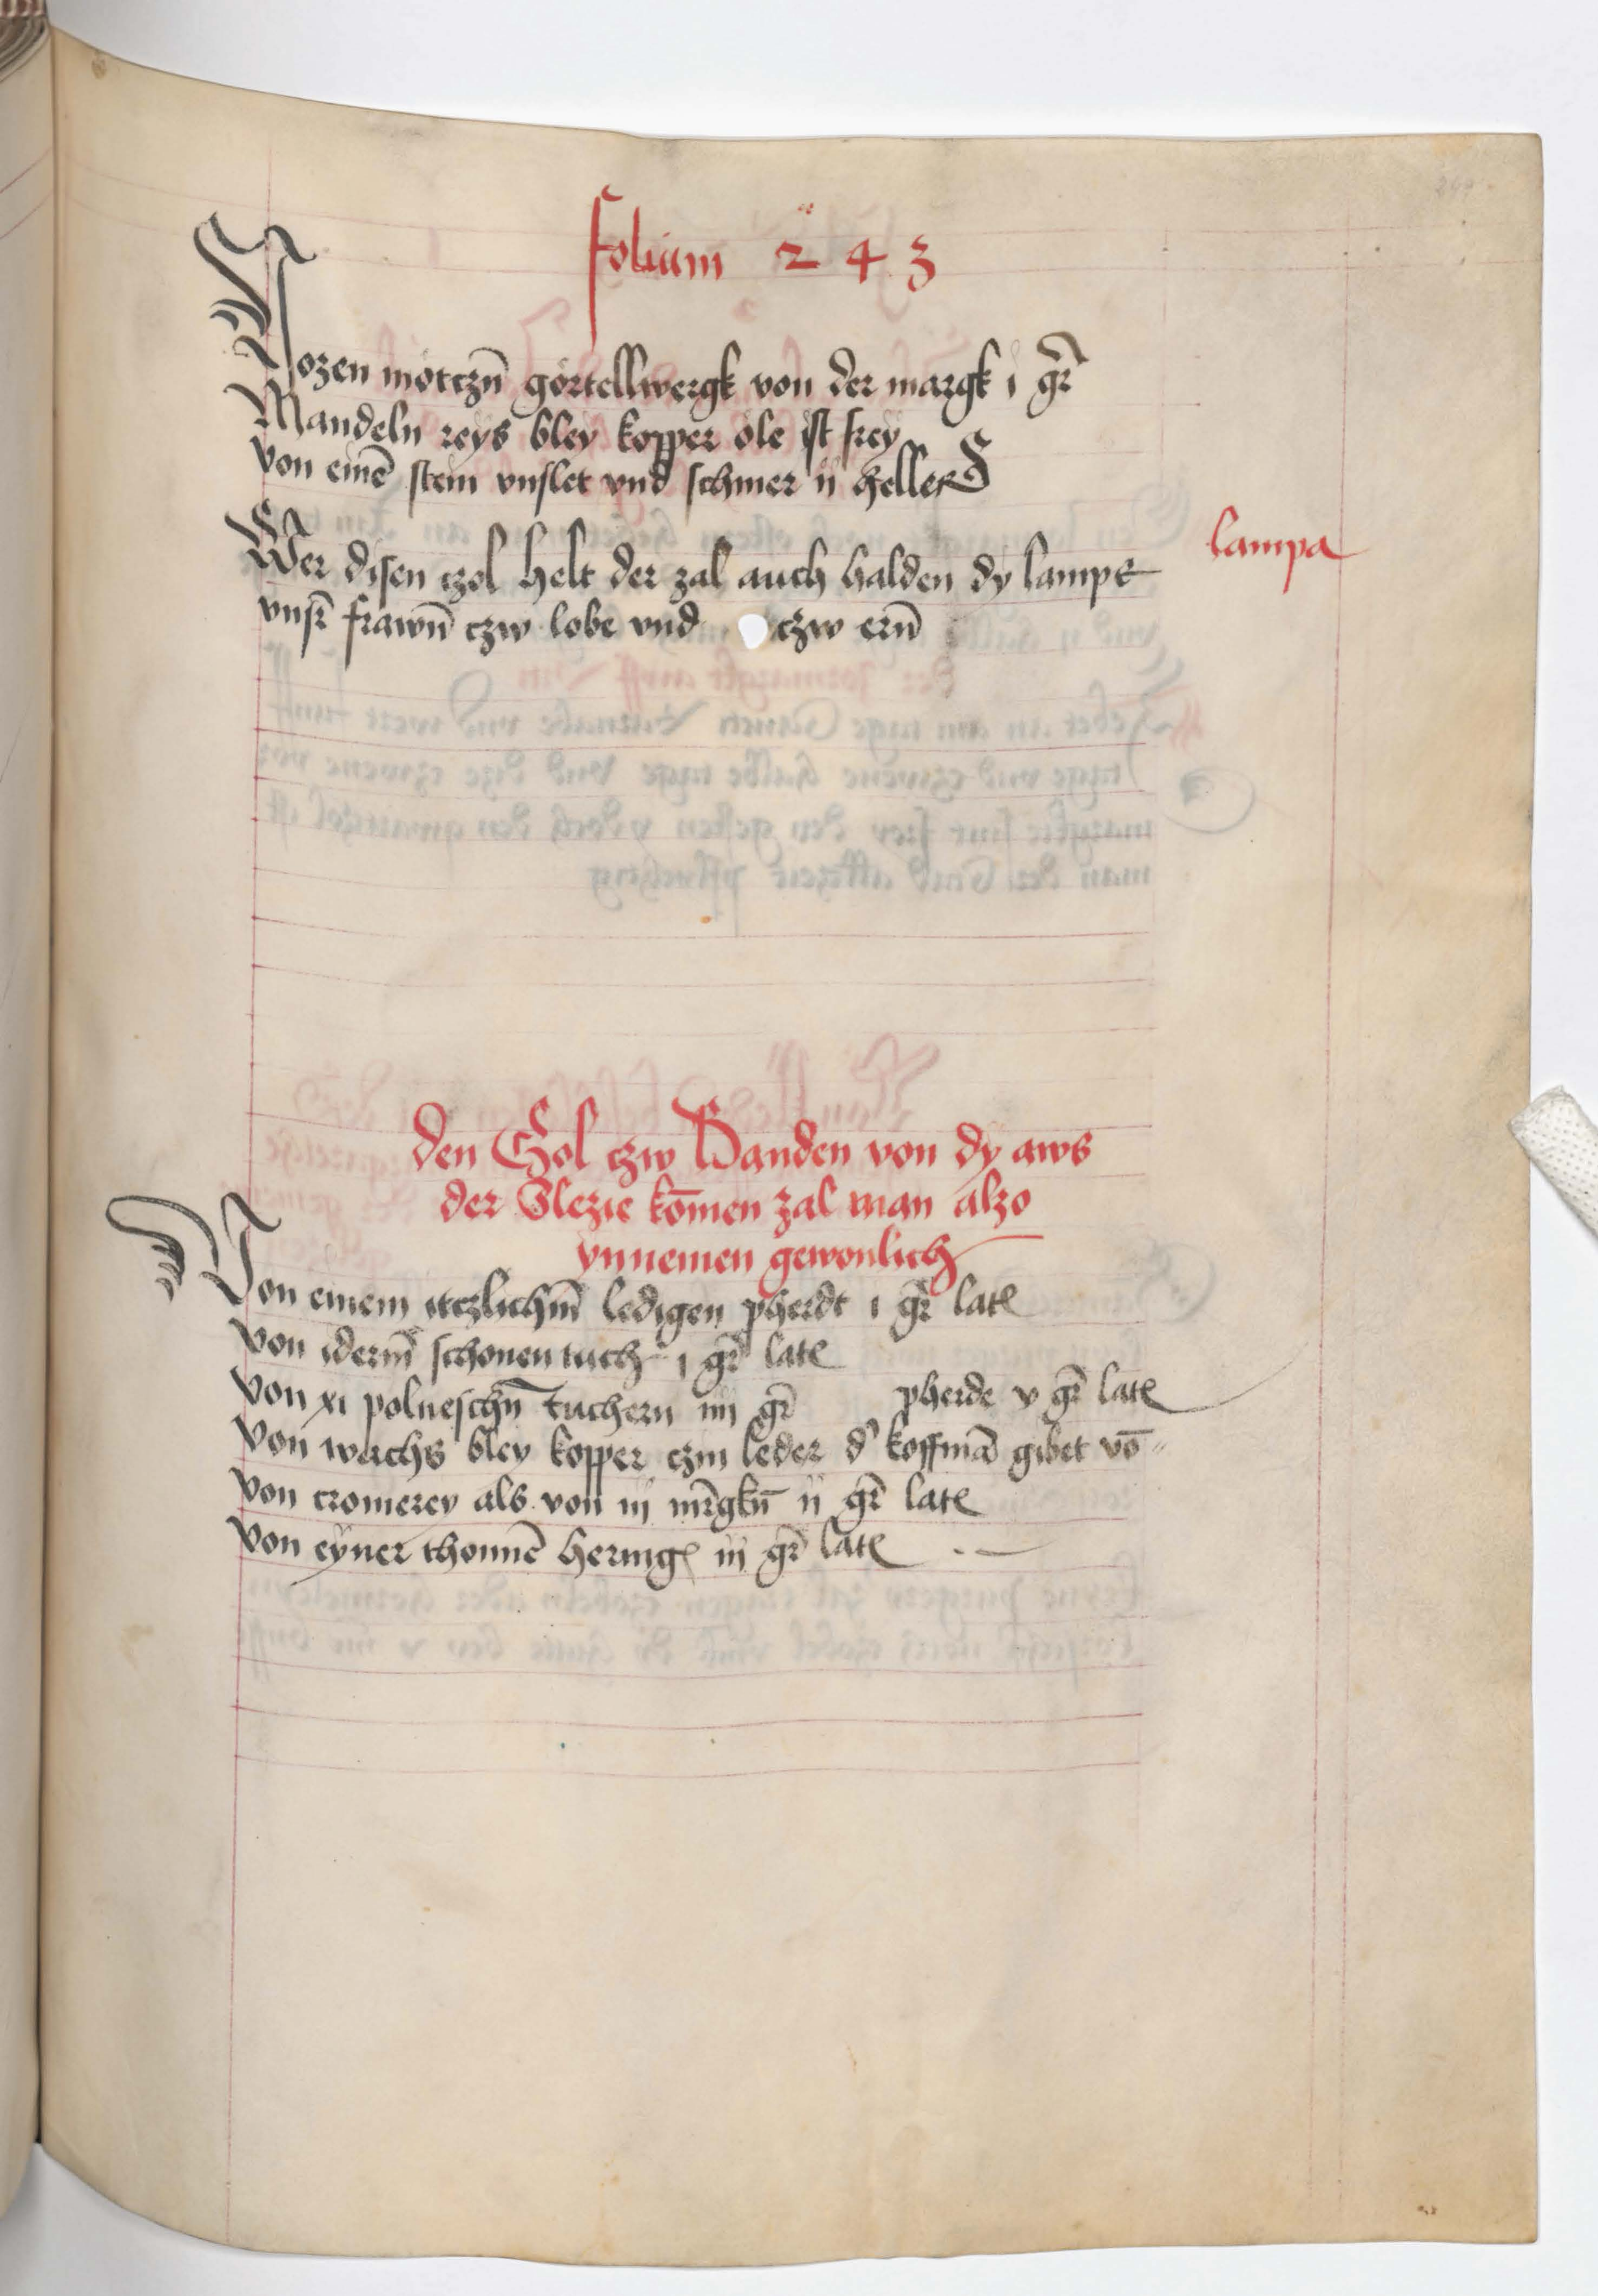 folium 243
Hozen mötczn̄ görtellwergk von der margk i gr̄
Mandeln reys bley kopper öle ist frey
von einē stein vnslet vnd schmer ii heller
Wer disen czol helt der zal auch halden dy lampe
lampa
vnsr̄ frawn̄ czw lobe vnd czw ern̄
den Czol czw Banden von dy aws
der Slezie kōmen zal man alzo
ynnemen gewonlich
Von einem itczlichm̄ ledigen pherdt i gr̄ late
von iderm̄ schonen tuch i gr̄ late
von xi polneschn̄ tuchern iiij gr̄ pherde v gr̄ late
von wachs bley kopper czin leder d' koffmā gibet vō
von cromerey als von iij mr̄gkn̄ ii gr̄ late
von eyner thonnē hering iij gr̄ late